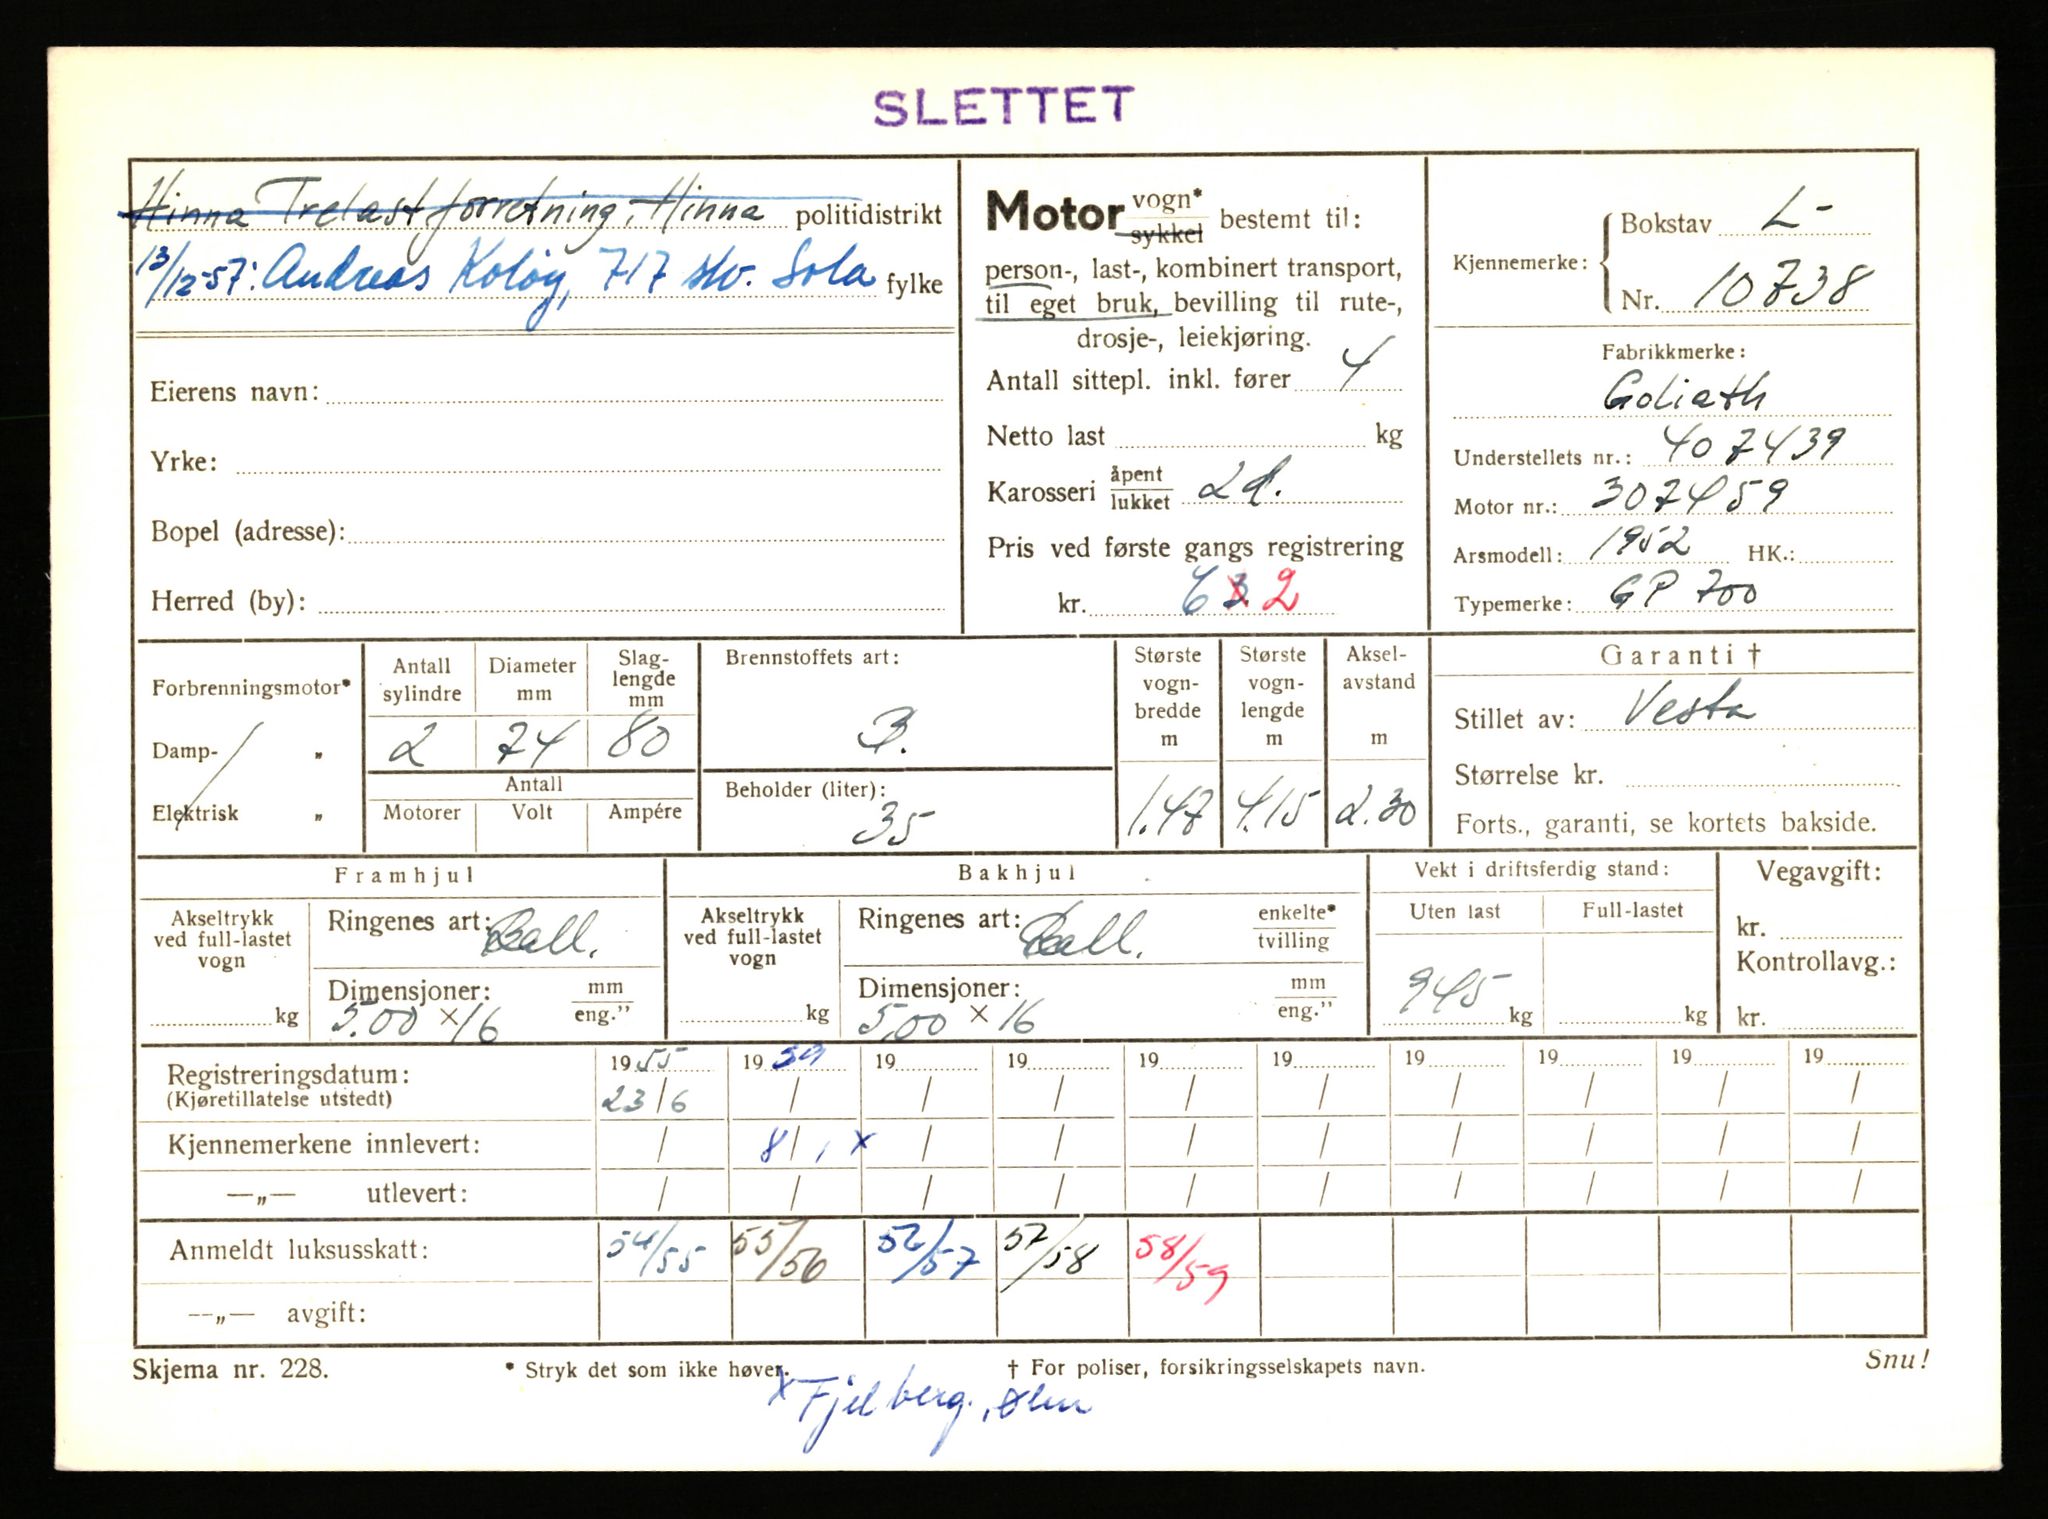 SLETTET
Hinna Trelastforretning, Hinna politidistrikt
13/12-57: Andreas Koløy, 717 skv. Sola fylke
Eierens navn:
Yrke:
Bopel (adresse):
Herred (by):
Motor vogn* sykkel bestemt til:
person-, last-, kombinert transport,
til eget bruk, bevilling til rute-,
drosje-, leiekjøring.
Antall sittepl. inkl. fører 4
Netto last kg
Karosseri åpent lukket 2d.
Pris ved første gangs registrering
kr. 632
Kjennemerke: Bokstav L-
Nr. 10738
Fabrikkmerke:
Goliath
Understellets nr.: 407439
Motor nr.: 307459
Årsmodell: 1952 HK.:
Typemerke: GP 700
Forbrenningsmotor*
Damp- „
Elektrisk „
Antall sylindre
Diameter mm
Slag-lengde mm
2 74 80
Antall
Motorer Volt Ampére
Brennstoffets art:
B.
Beholder (liter):
35
Største vogn-bredde m
1.47
Største vogn-lengde m
4.15
Aksel-avstand m
2.30
Garanti †
Stillet av: Vesta
Størrelse kr.
Forts., garanti, se kortets bakside.
Framhjul
Akseltrykk ved full-lastet vogn
kg
Ringenes art: Ball.
Dimensjoner: mm eng."
5.00 x 16
Bakhjul
Akseltrykk ved full-lastet vogn
kg
Ringenes art: Ball. enkelte* tvilling
Dimensjoner: mm eng."
5.00 x 16
Vekt i driftsferdig stand:
Uten last Full-lastet
945 kg kg
Vegavgift:
kr.
Kontrollavg.:
kr.
Registreringsdatum: 1955 1959 19 19 19 19 19 19 19 19
(Kjøretillatelse utstedt) 23/6 / / / / / / / / /
Kjennemerkene innlevert: / 8/1 x / / / / / / / /
—„— utlevert: / / / / / / / / / /
Anmeldt luksusskatt: 54/55 55/56 56/57 57/58 58/59
—„— avgift:
Skjema nr. 228. * Stryk det som ikke høver. † For poliser, forsikringsselskapets navn. Snu!
x Fjelberg, Ølen